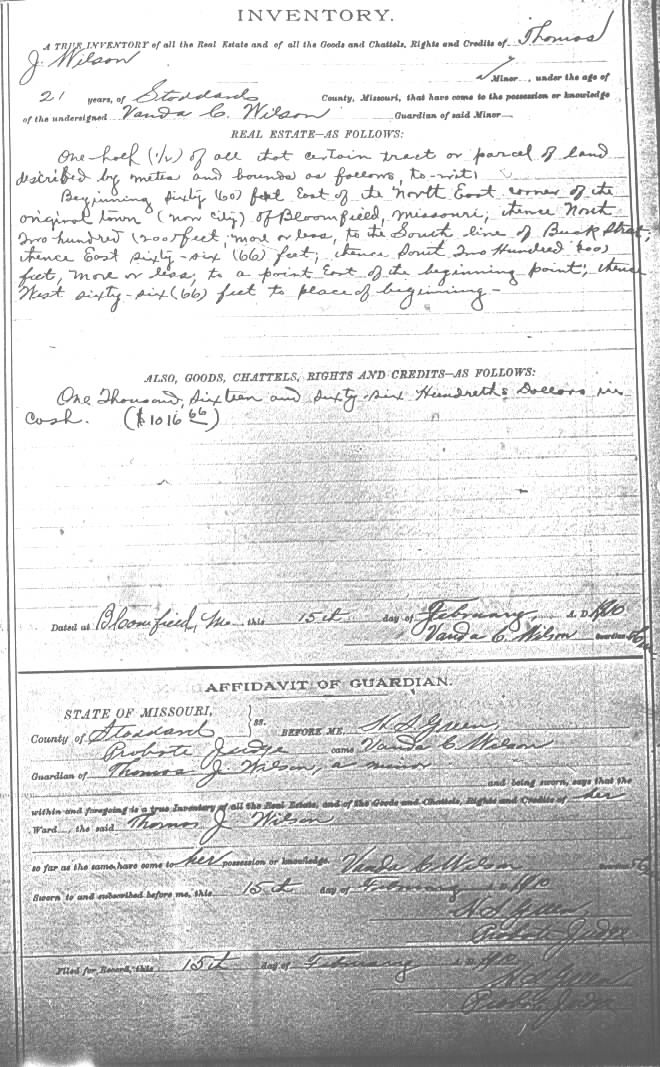 INVENTORY.
A TRUE INVENTORY of all the Real Estate and of all the Goods and Chattels, Rights and Credits of Thomas
J Wilson
Minor, under the age of
21 years, of Stoddard County, Missouri, that have come to the possession or knowledge
of the undersigned Vanda C. Wilson Guardian of said Minor
REAL ESTATE—AS FOLLOWS:
One-half (1/2) of all that certain tract or parcel of land
described by metes and bounds as follows, to-wit:
Beginning sixty (60) feet East of the North East corner of the
original town (now city) of Bloomfield, Missouri; thence North
Two hundred (200) feet, more or less, to the South line of Buck Street;
thence East sixty-six (66) feet; thence Sout Two Hundred (200)
feet, more or less, to a point East of the beginning point; thence
West sixty-six (66) feet to place of beginning-
ALSO, GOODS, CHATTELS, RIGHTS AND CREDITS—AS FOLLOWS:
One Thousand, Sixteen and sixty-six Hundreths Dollars in
Cash. ($1016 66)
Dated at Bloomfield, Mo this 15th day of February, A. D. 1910
Vanda C. Wilson Guardian
AFFIDAVIT OF GUARDIAN.
STATE OF MISSOURI,
County of Stoddard } ss. BEFORE ME, Green,
Probate Judge came Vanda C Wilson
Guardian of Thomas J. Wilson, a minor
and being sworn, says that the
within and foregoing is a true Inventory of all the Real Estate, and of the Goods and Chattels, Rights and Credits of her
Ward, the said Thomas J Wilson
so far as the same have come to her possession or knowledge. Vanda C Wilson
Sworn to and subscribed before me, this 15th day of February 1910
Green,
Probate Judge
Filed for Record, this 15th day of February A. D. 1910
Green
Probate Judge